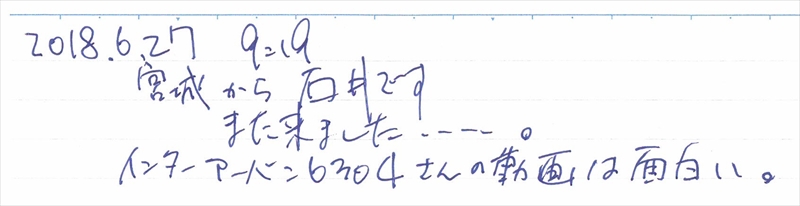 2018.6.27 9:19
宮城から石井です
また来ました……。
インターアーバン6304さんの動画は面白い。